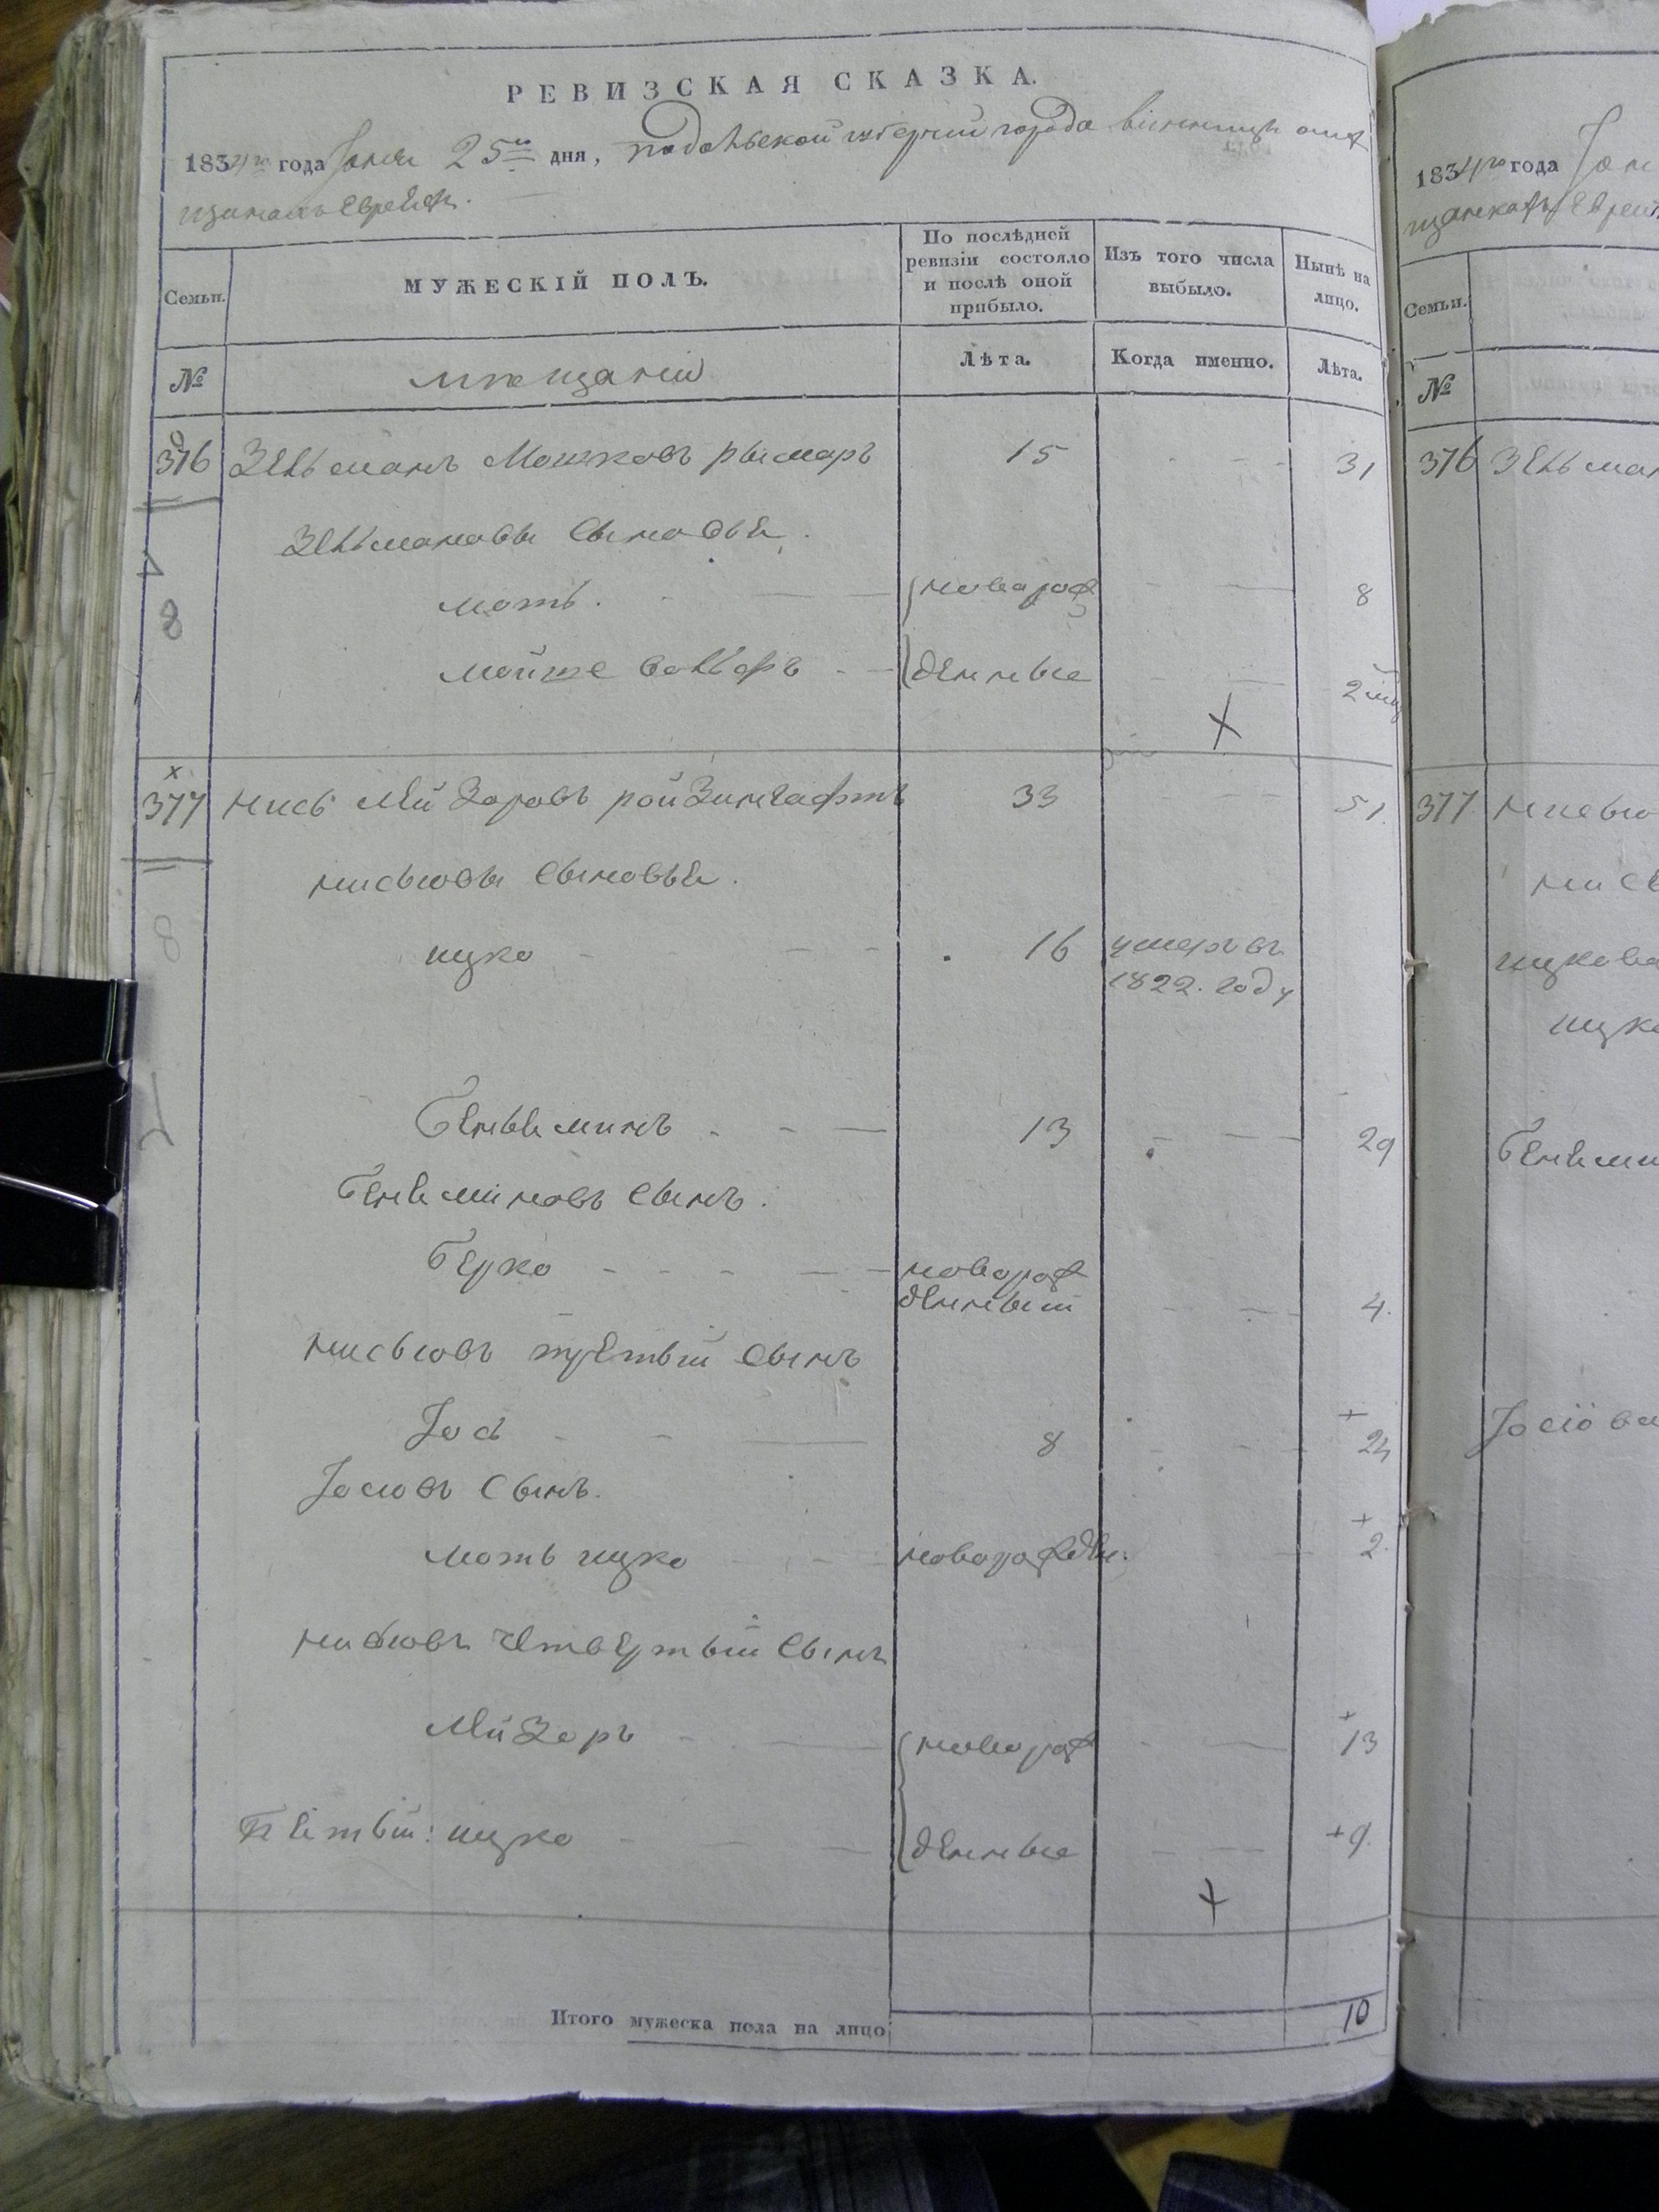 РЕВИЗСКАЯ СКАЗКА.
1834го года Іюня 25го дня, подольской губерніи города винницы омѣ
щанахъ Евреяхъ.
Семьи. МУЖЕСКІЙ ПОЛЪ. По послѣдней ревизіи состояло и послѣ оной прибыло. Изъ того числа выбыло. Нынѣ на лицо.
№ мѣщаніи Лѣта. Когда именно. Лѣта.
376 Зельманъ Мошковъ рымаръ 15 31
Зельмановы сыновья.
8
моть. новорож 8
мойше вольфъ денные 2
377 нись лейзоровъ ройзингафтъ 33 51.
нисьовы сыновья.
8
ицко 16 умеръ въ
1822. году
Беньяминъ 13 29
Беняминовъ сынъ.
Берко новорож
денный 4.
нисьовъ третый сынъ
Іось 8 24
Іосіовъ сынъ.
моть ицко новорожден: 2.
нисьовъ четвертый сынъ
лейзоръ новорож 13
пятый: ицко денные 9.
Итого мужеска пола на лицо 10
1834го года Іюн
щанкахъ Евреи
Семьи.
№
376 Зельман
377
ицкова
ицко
Бенями
Іосіова